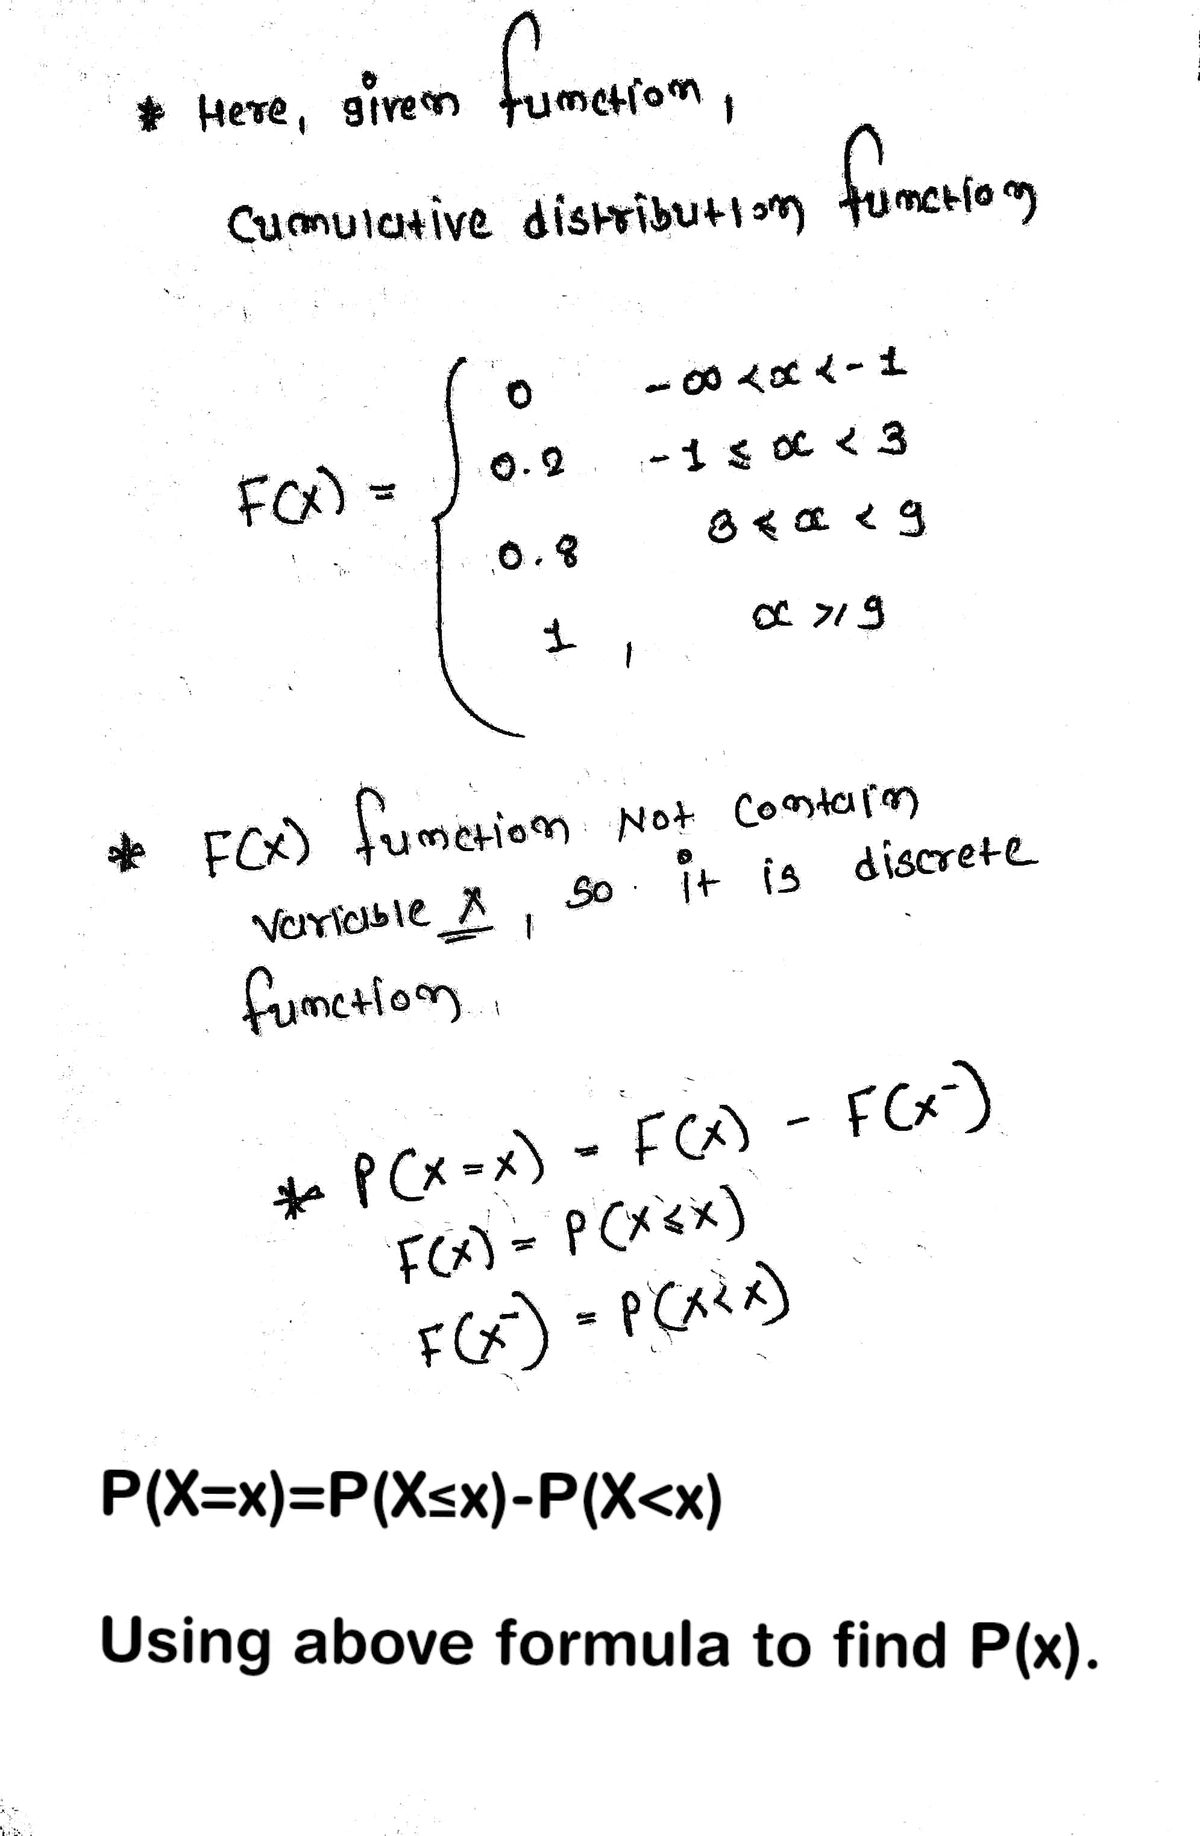 * Here, given function,
Cumulative distribution function
0 -∞ <x< -1
0.2 -1 ≤ x < 3
F(x) =
0.8 3 ≤ x < 9
1 , x ≥ 9
* F(x) function Not contain
variable x, so it is discrete
function.
* P(x=x) = F(x) - F(x⁻)
F(x) = P(x≤x)
F(x⁻) = P(x<x)
P(X=x)=P(X≤x)-P(X<x)
Using above formula to find P(x).